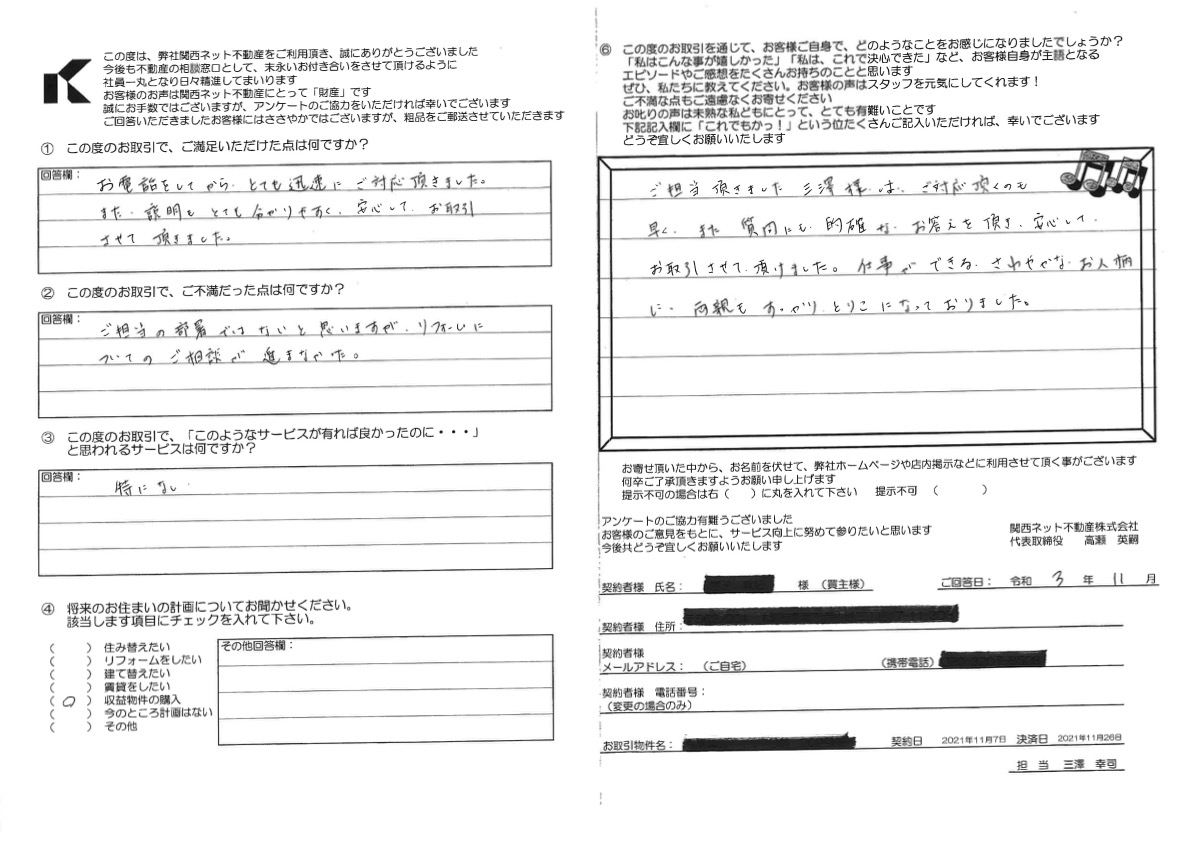 この度は、弊社関西ネット不動産をご利用頂き、誠にありがとうございました
今後も不動産の相談窓口として、末永いお付き合いをさせて頂けるように
社員一丸となり日々精進してまいります
お客様のお声は関西ネット不動産にとって「財産」です
誠にお手数ではございますが、アンケートのご協力をいただければ幸いでございます
ご回答いただきましたお客様にはささやかではございますが、粗品をご郵送させていただきます
① この度のお取引で、ご満足いただけた点は何ですか？
回答欄：
お電話をしてから、とても迅速にご対応頂きました。
また、説明もとても分かりやすく、安心して、お取引
させて頂きました。
② この度のお取引で、ご不満だった点は何ですか？
回答欄：
ご担当の部署ではないと思いますが、リフォームに
ついてのご相談が進まなかった。
③ この度のお取引で、「このようなサービスが有れば良かったのに・・・」
と思われるサービスは何ですか？
回答欄：
特になし
④ 将来のお住まいの計画についてお聞かせください。
該当します項目にチェックを入れて下さい。
（　　）住み替えたい
（　　）リフォームをしたい
（　　）建て替えたい
（　　）賃貸をしたい
（ ○ ）収益物件の購入
（　　）今のところ計画はない
（　　）その他
その他回答欄：
⑥ この度のお取引を通じて、お客様ご自身で、どのようなことをお感じになりましたでしょうか？
「私はこんな事が嬉しかった」「私は、これで決心できた」など、お客様自身が主語となる
エピソードやご感想をたくさんお持ちのことと思います
ぜひ、私たちに教えてください。お客様の声はスタッフを元気にしてくれます！
ご不満な点もご遠慮なくお寄せください
お叱りの声は未熟な私どもにとって、とても有難いことです
下記記入欄に「これでもかっ！」という位たくさんご記入いただければ、幸いでございます
どうぞ宜しくお願いいたします
ご担当頂きました三澤様は、ご対応頂くのも
早く、また質問にも的確なお答えを頂き、安心して、
お取引させて頂けました。仕事ができる、さわやかなお人柄
に、両親もすっかりとりこになっておりました。
お寄せ頂いた中から、お名前を伏せて、弊社ホームページや店内掲示などに利用させて頂く事がございます
何卒ご了承頂きますようお願い申し上げます
提示不可の場合は右（　　）に丸を入れて下さい　提示不可　（　　　）
アンケートのご協力有難うございました
お客様のご意見をもとに、サービス向上に努めて参りたいと思います
今後共どうぞ宜しくお願いいたします
関西ネット不動産株式会社
代表取締役　高瀬　英嗣
契約者様　氏名：　様　（買主様）
ご回答日：　令和　3　年　11　月
契約者様　住所：
契約者様
メールアドレス：　（ご自宅）　（携帯電話）
契約者様　電話番号：
（変更の場合のみ）
お取引物件名：　契約日　2021年11月7日　決済日　2021年11月26日
担　当　三澤　幸司